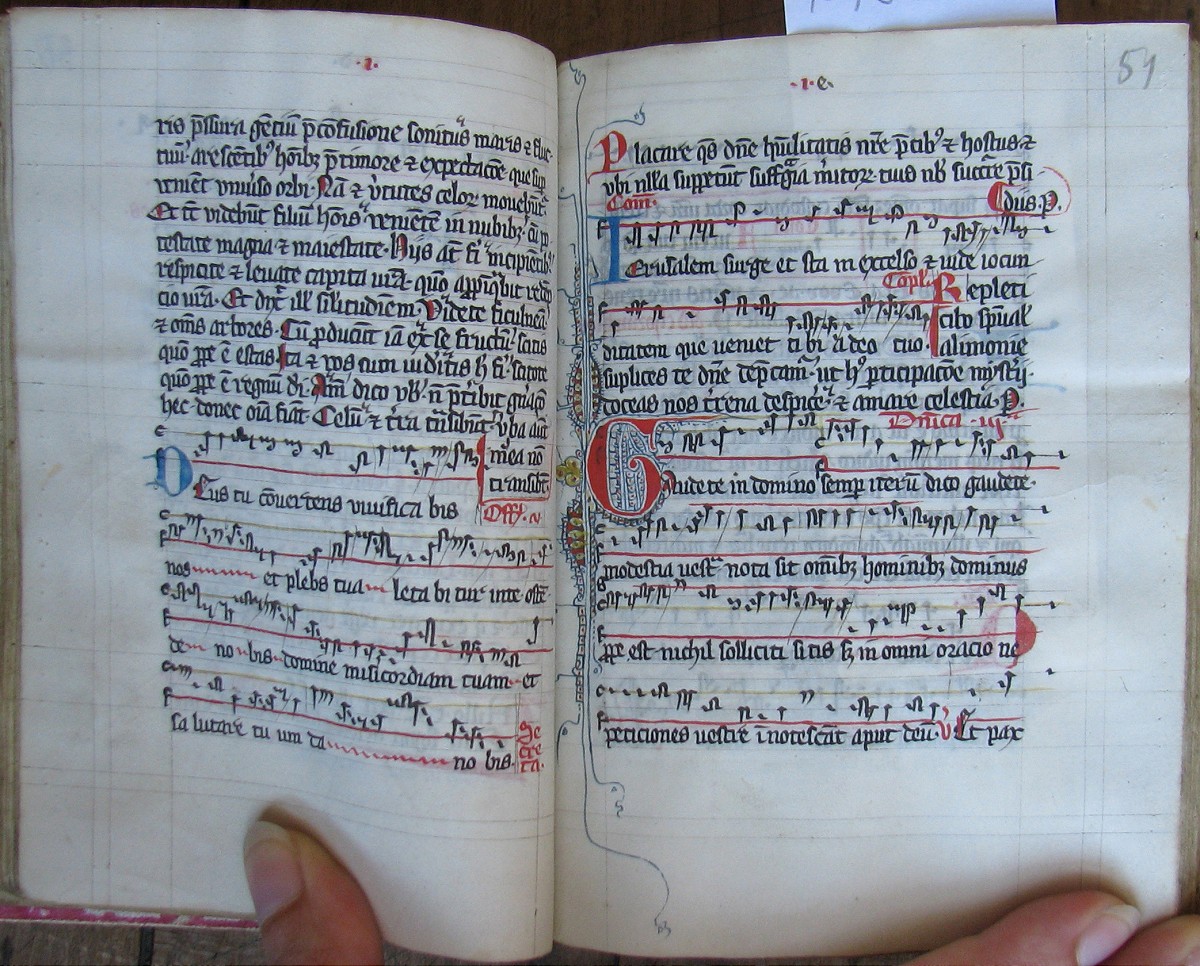 ·1·
ris p̄ssura gētiū p̄ cōfusione sonitus maris ⁊ fluc
tuū· arescētibꝫ hoībꝫ p̄ timore ⁊ expectacōe que sup
veniēt vniuso orbi· Nā ⁊ v̓tutes celoꝝ mouebūt᷑
Et tc̄ videbūt filiū hoīs veniētē in nubibꝫ cū po
testate magna ⁊ maiestate· Hijs āt fi incipiētibꝫ
respicite ⁊ leuate capita vrā· qm̄o appīqbit redēp
cio vrā· Et dix̄ ill̄ silitudiēm· Videte ficulneā
⁊ om̄s arbores· Cū pducūt iā ex se fructū· scitis
qm̄o ꝓpe ē estas· Ita ⁊ vos cum vid̓itis h̄ fi· scitote
qm̄o ꝓpe ē regnū di· Am̄ dico vb̄· n̄ p̄ribit gn̓acō
hec· donec oīa fiāt· Celū ⁊ t̓ra trāsibūt· v̓ba aūt
mea nō
D Eus tu cōuertens viuifica bis transibūt
Offr̄
nos et plebs tua leta bi tur in te ostē
de no bis domine misicordiam tuam et
sa lutare tu um da no bis· Secreta·
·1·e·
51
P lacare qs dn̄e hūilitatis nr̄e p̄cibꝫ ⁊ hostiis ⁊
vbi nulla suppetūt suffragia m̓itoꝝ tuis nb̄ succr̄e p̄si
Com̄· diis· P·
I Erusalem surge et sta in excelso ⁊ vide iocun
Cōpl̄· Repleti
cibo sp̄ual
ditatem que veniet ti bi a deo tuo· alimonie
suplices te dn̄e dep̄camᷓ· ut hꝰ p̄ticipacōe myst̓ij
doceas nos trena despic̓e ⁊ amare celestia· P·
Dn̄ica iij
G Audete in domino semp iterū dico gaudete·
modestia vestᷓ nota sit omībꝫ hominibꝫ dominus
ꝓpe est nichil solliciti sitis sꝫ in omni oracio ne
peticiones vestre īnotescāt aput deū· V̓ Et pax